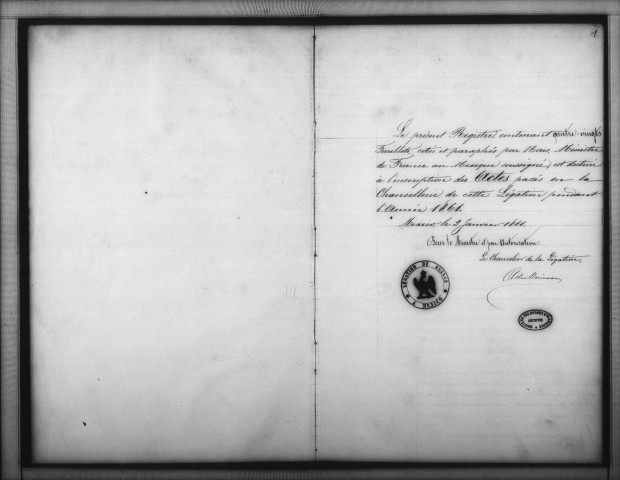 1
Le présent Registre, contenant quatre-vingts
Feuillets cotés et paraphés par Nous, Ministre
de France au Mexique soussigné, est destiné
à l'inscription des Actes passés en la
Chancellerie de cette Légation pendant
l'Année 1861.
Mexico, le 2 Janvier 1861.
Pour le Ministre et par Autorisation
Le Chancelier de la Légation,
LÉGATION DE FRANCE
A MEXICO
ARCHIVES